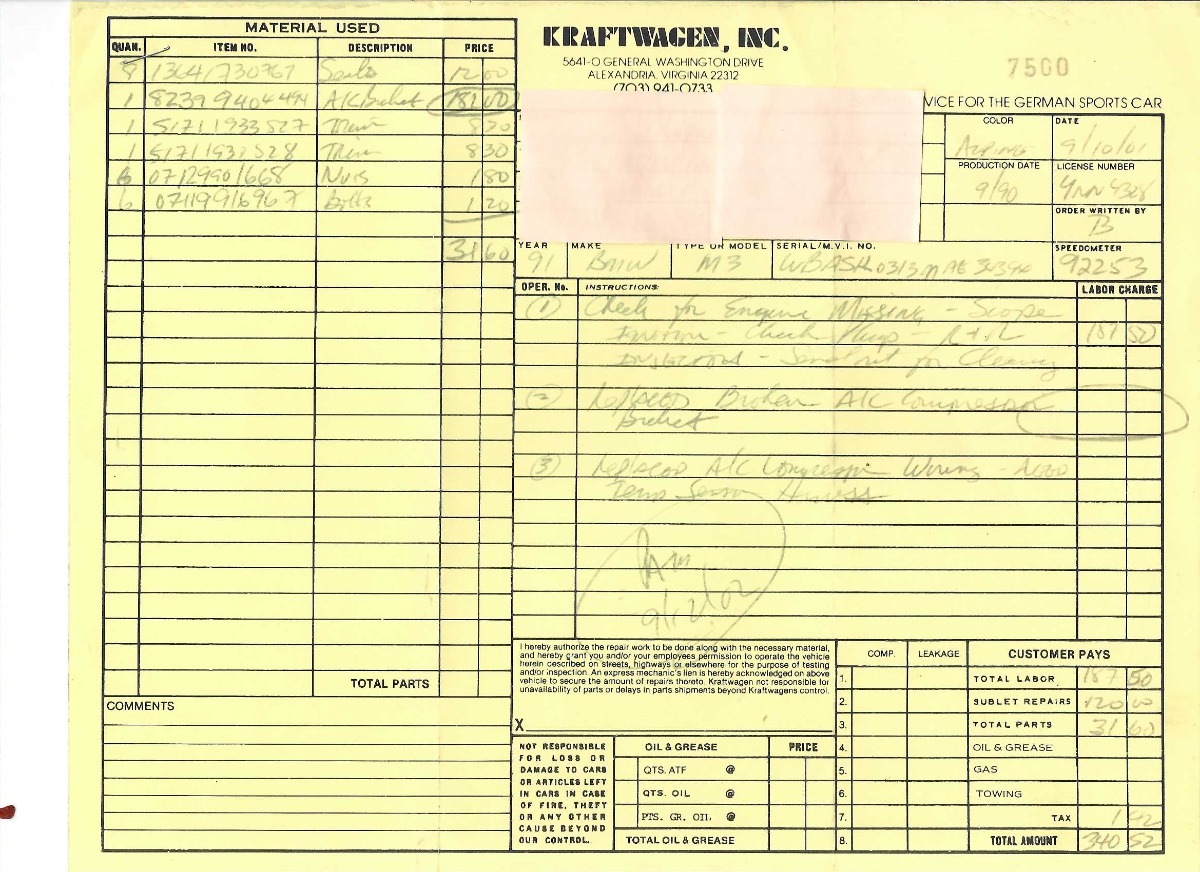 MATERIAL USED
QUAN. ITEM NO. DESCRIPTION PRICE
8 13641730767 Seals 12 00
1 82399404494 A/C Bracket 181 00
1 51711933527 8 30
1 51711933528 8 30
6 07129901668 Nuts 1 80
6 07119916967 Bolts 1 20
31 60
TOTAL PARTS
COMMENTS
KRAFTWAGEN, INC.
5641-O GENERAL WASHINGTON DRIVE
ALEXANDRIA, VIRGINIA 22312
(703) 941-0733
7500
VICE FOR THE GERMAN SPORTS CAR
COLOR DATE
Alpine 9/10/01
PRODUCTION DATE LICENSE NUMBER
9/90
ORDER WRITTEN BY
B
YEAR MAKE TYPE OR MODEL SERIAL/M.V.I. NO. SPEEDOMETER
91 BMW M3 92253
OPER. No. INSTRUCTIONS: LABOR CHARGE
(1) Check for Engine Missing - Scope
Ignition - Check Plugs - R+R 187 50
Injectors - Send out for Cleaning
(2) Replaced Broken A/C Compressor
Bracket
(3) Replaced A/C Compressor Wiring - Also
Temp Sensor Harness
I hereby authorize the repair work to be done along with the necessary material,
and hereby grant you and/or your employees permission to operate the vehicle
herein cescribed on streets, highways or elsewhere for the purpose of testing
and/or inspection. An express mechanic's lien is hereby acknowledged on above
vehicle to secure the amount of repairs thereto. Kraftwagen not responsible for
unavailability of parts or delays in parts shipments beyond Kraftwagens control.
X
NOT RESPONSIBLE
FOR LOSS OR
DAMAGE TO CARS
OR ARTICLES LEFT
IN CARS IN CASE
OF FIRE, THEFT
OR ANY OTHER
CAUSE BEYOND
OUR CONTROL.
OIL & GREASE PRICE
QTS. ATF @
QTS. OIL @
PTS. GR. OIL @
TOTAL OIL & GREASE
COMP. LEAKAGE CUSTOMER PAYS
1. TOTAL LABOR 187 50
2. SUBLET REPAIRS 120 00
3. TOTAL PARTS 31 60
4. OIL & GREASE
5. GAS
6. TOWING
7. TAX 1 42
8. TOTAL AMOUNT 340 52